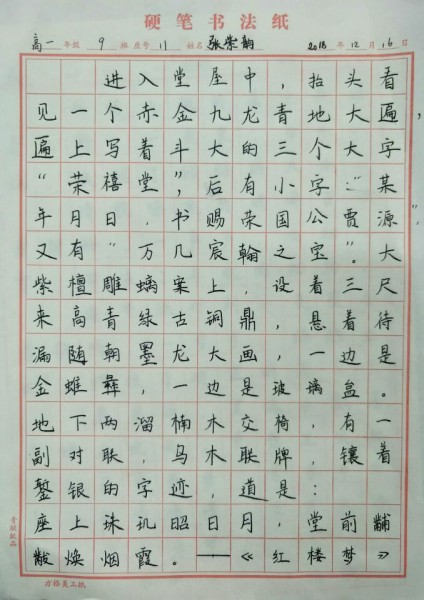 硬笔书法纸
高一 年级 9 班 座号 11 姓名 张崇韵 2018 年 12 月 16 日
进入堂屋中，抬头看
见一个赤金九龙青地大匾，
匾上写着斗大的三个大字
“荣禧堂”，后有小字：“某
年月日，书赐荣国公贾源”，
又有“万几宸翰之宝”。大
紫檀雕螭案上，设着三尺
来高青绿古铜鼎，悬着待
漏随朝墨龙大画，一边是
金蜼彝，一边是玻璃盒。
地下两溜楠木交椅，有一
副对联，乌木联牌，镶着
錾银的字迹，道是：
座上珠玑昭日月，堂前黼
黻焕烟霞。——《红楼梦》
方格美工纸